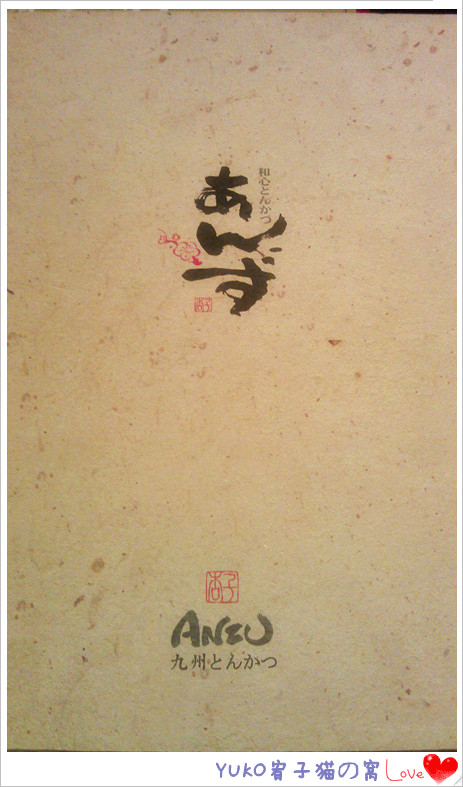 和心とんかつ
あんず
杏子
杏子
ANZU
九州とんかつ
YUKO宥子猫の窝 Love